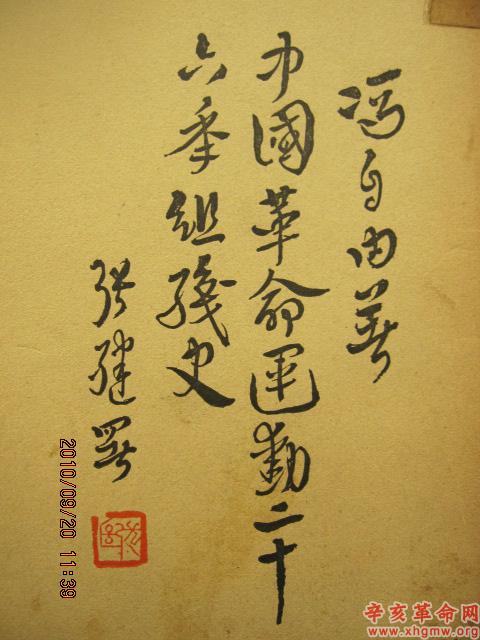 馮自由著
中國革命運動二十
六年組織史
張繼署
2010/09/20 11:39
辛亥革命网
www.xhgmw.org